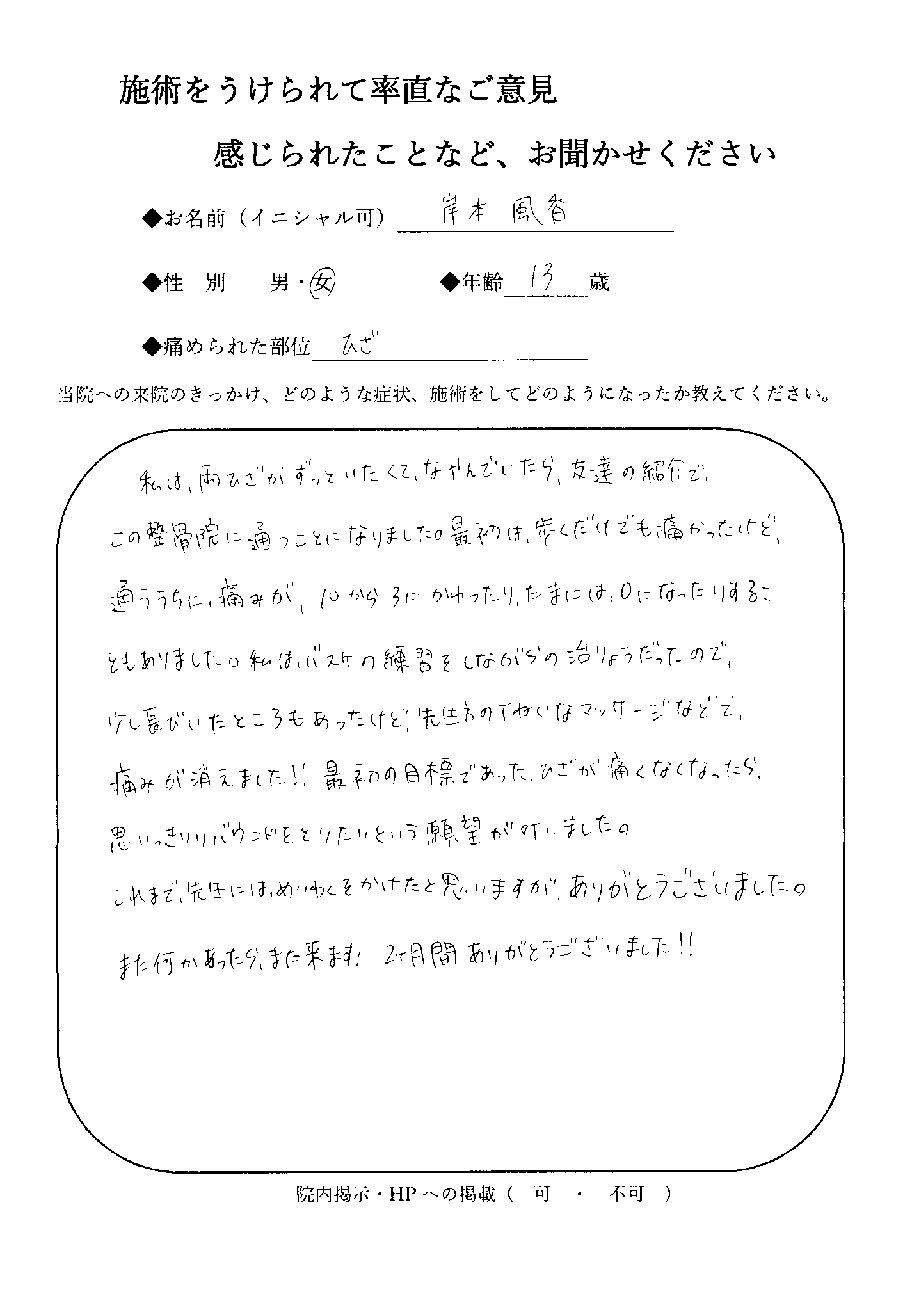 施術をうけられて率直なご意見
感じられたことなど、お聞かせください
◆お名前（イニシャル可） 岸本 風香
◆性 別 男・女 ◆年齢 13 歳
◆痛められた部位 ひざ
当院への来院のきっかけ、どのような症状、施術をしてどのようになったか教えてください。
私は、両ひざがずっといたくて、なやんでいたら、友達の紹介で、
この整骨院に通うことになりました。最初は、歩くだけでも痛かったけど、
通ううちに、痛みが、10から3にかわったり、たまには、0になったりするこ
ともありました。私は、バスケの練習をしながらの治りょうだったので、
少し長びいたところもあったけど、先生方のていねいなマッサージなどで、
痛みが消えました!! 最初の目標であった、ひざが痛くなくなったら、
思いっきりリバウンドをとりたいという願望が叶いました。
これまで、先生には、めいわくをかけたと思いますが、ありがとうございました。
また何かあったら、また来ます! 2ヶ月間ありがとうございました!!
院内掲示・HPへの掲載（ 可 ・ 不可 ）